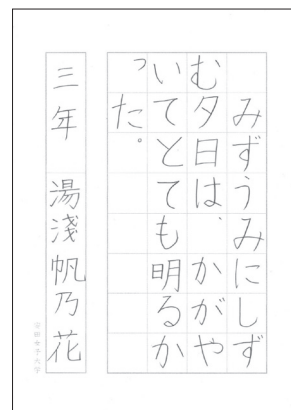 みずうみにしず
む夕日は、かがや
いてとても明るか
った。
三年 湯淺帆乃花
安田女子大学